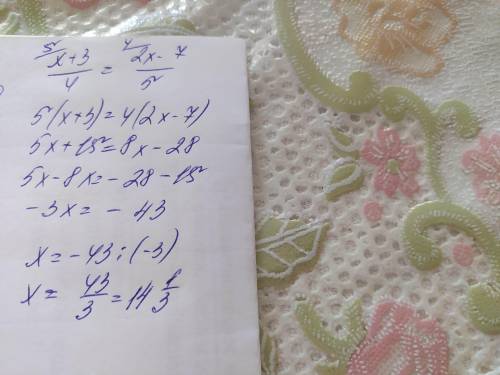 5/ x+3 / 4 = 4/ 2x-7 / 5
5(x+3)=4(2x-7)
5x+15=8x-28
5x-8x=-28-15
-3x=-43
x=-43:(-3)
x=43/3=14 1/3